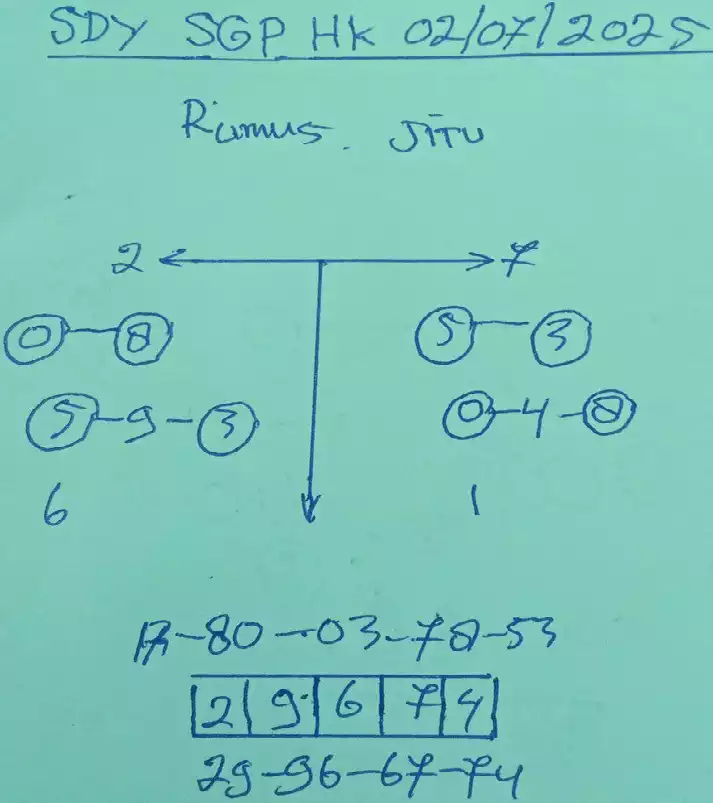 SDY SGP HK 02/07/2025
Rumus. JITU
2 7
0-8 5-3
5-9-3 0-4-8
6 1
-80-03-78-53
2 9 6 7 4
29-96-67-74